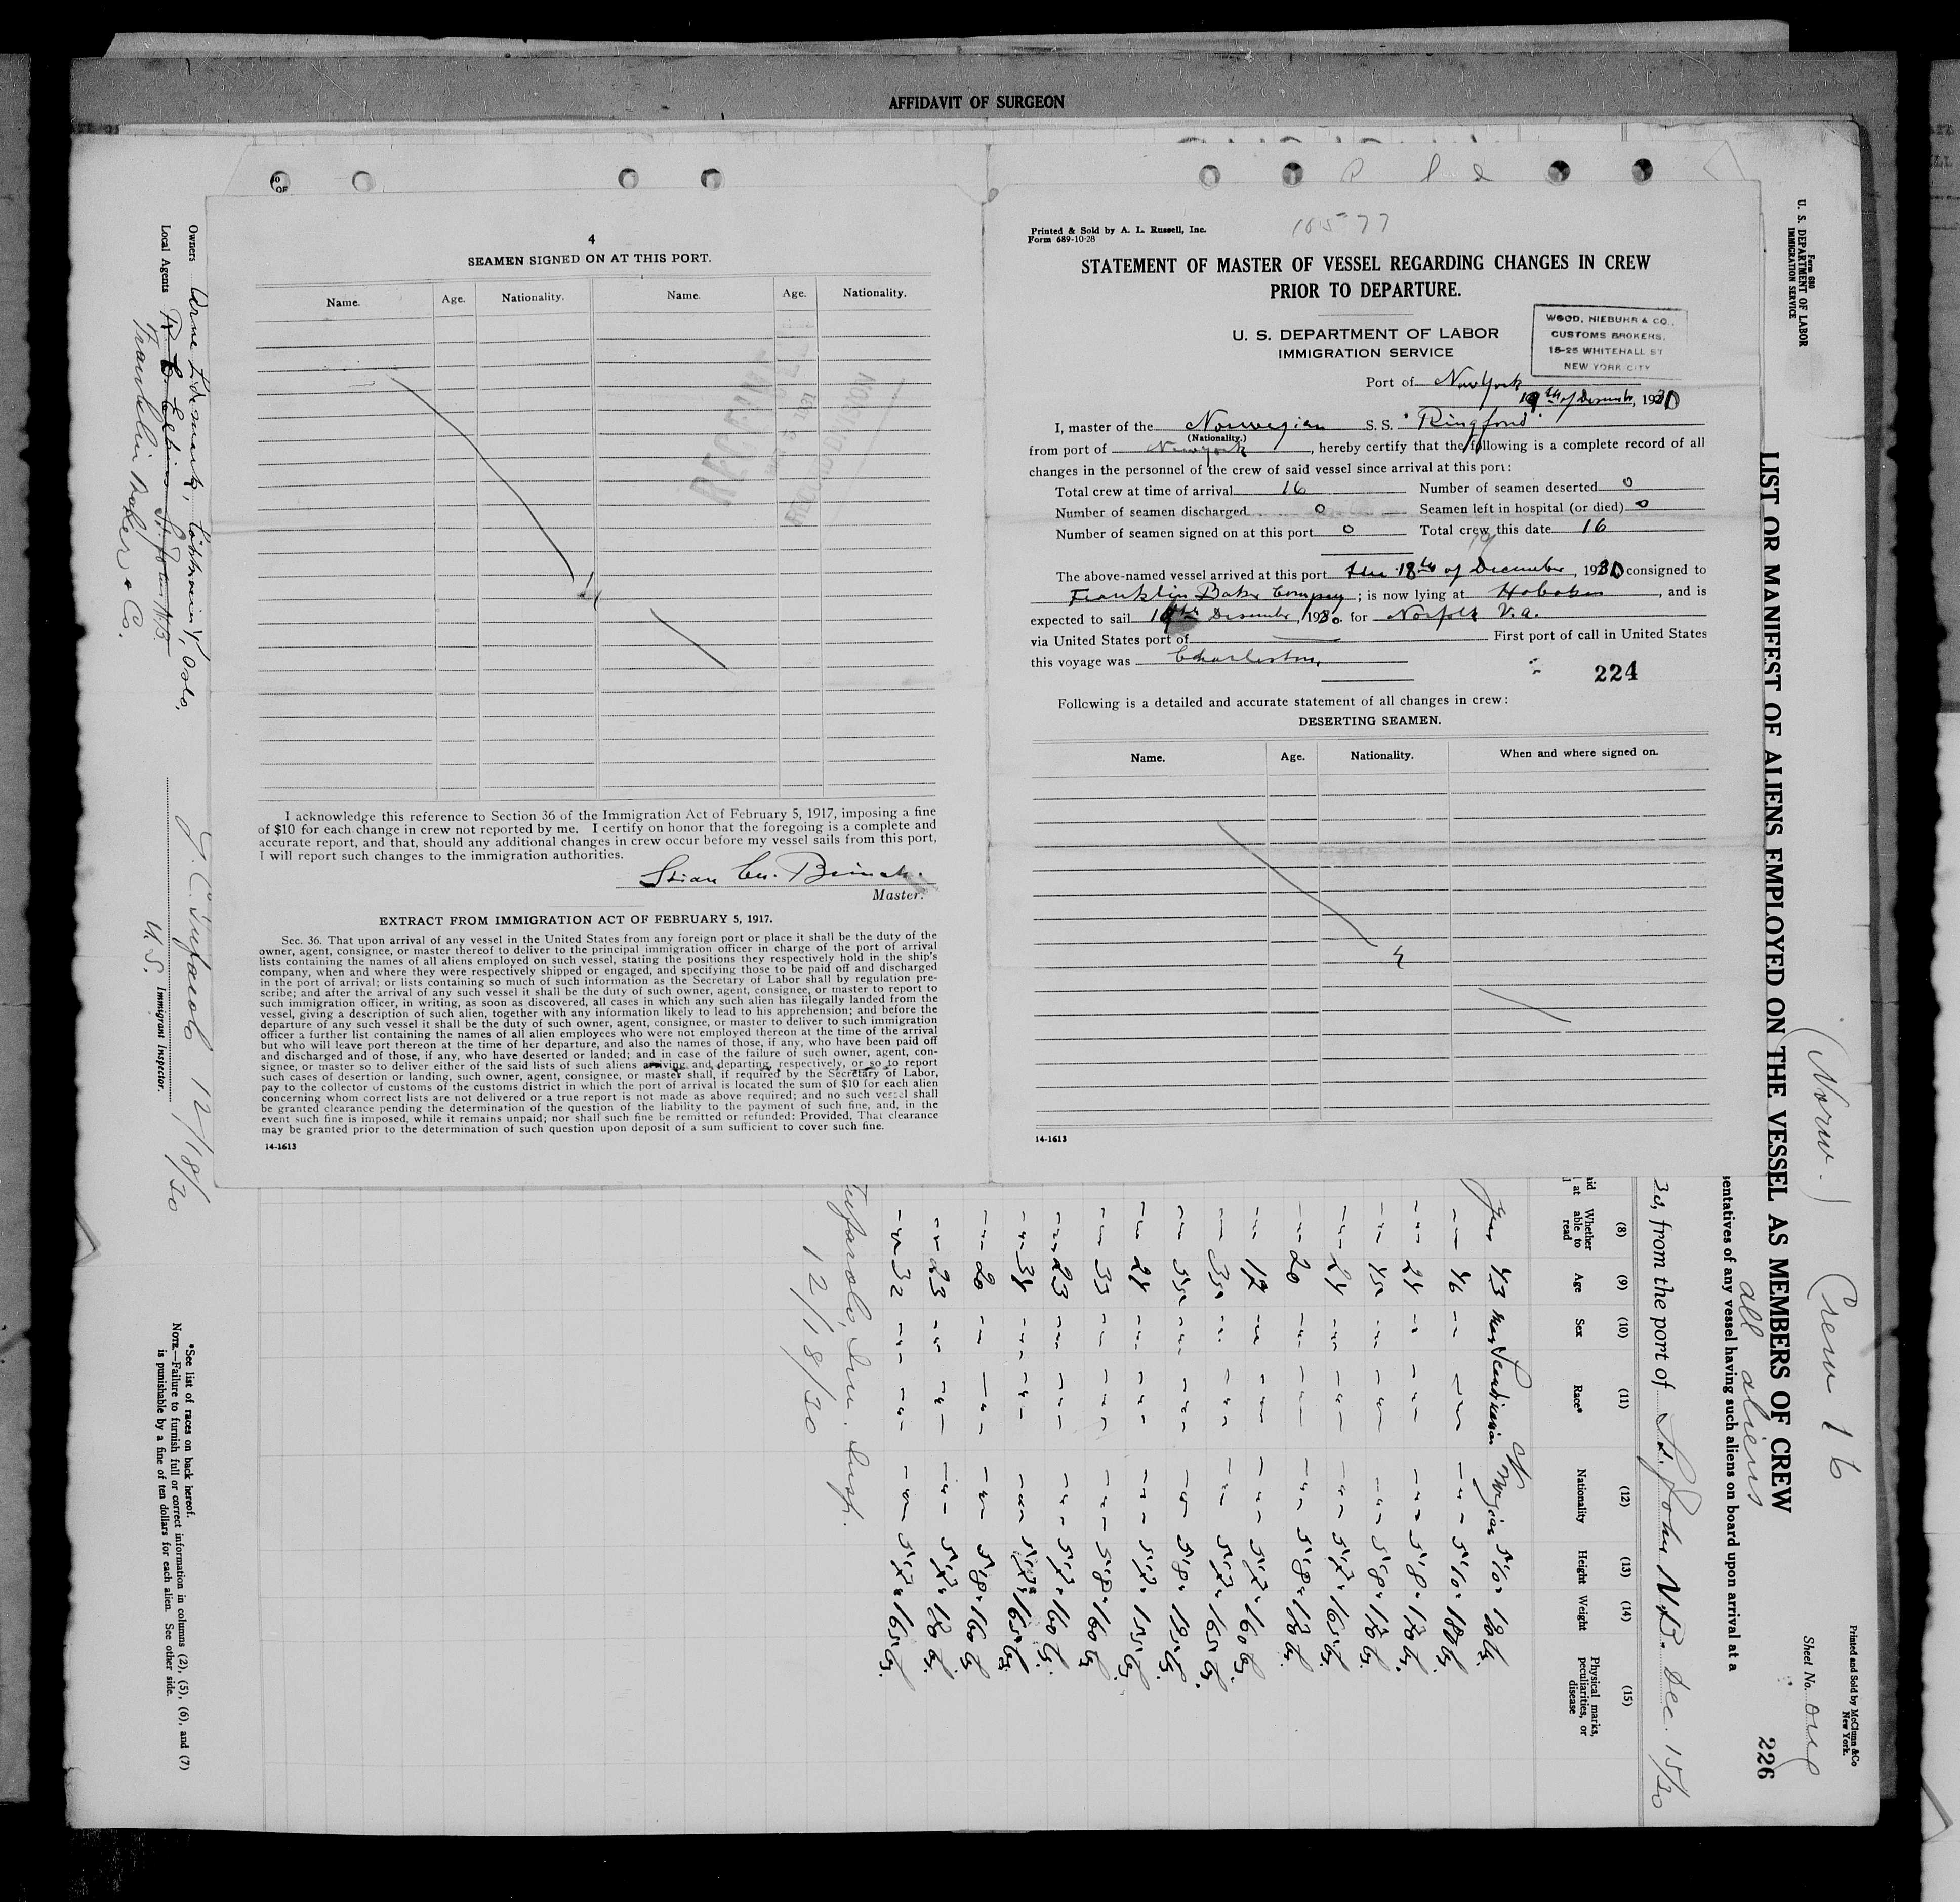 AFFIDAVIT OF SURGEON
4
SEAMEN SIGNED ON AT THIS PORT.
Name. Age. Nationality. Name. Age. Nationality.
I acknowledge this reference to Section 36 of the Immigration Act of February 5, 1917, imposing a fine
of $10 for each change in crew not reported by me. I certify on honor that the foregoing is a complete and
accurate report, and that, should any additional changes in crew occur before my vessel sails from this port,
I will report such changes to the immigration authorities.
Master.
EXTRACT FROM IMMIGRATION ACT OF FEBRUARY 5, 1917.
Sec. 36. That upon arrival of any vessel in the United States from any foreign port or place it shall be the duty of the
owner, agent, consignee, or master thereof to deliver to the principal immigration officer in charge of the port of arrival
lists containing the names of all aliens employed on such vessel, stating the positions they respectively hold in the ship's
company, when and where they were respectively shipped or engaged, and specifying those to be paid off and discharged
in the port of arrival; or lists containing so much of such information as the Secretary of Labor shall by regulation pre-
scribe; and after the arrival of any such vessel it shall be the duty of such owner, agent, consignee, or master to report to
such immigration officer, in writing, as soon as discovered, all cases in which any such alien has illegally landed from the
vessel, giving a description of such alien, together with any information likely to lead to his apprehension; and before the
departure of any such vessel it shall be the duty of such owner, agent, consignee, or master to deliver to such immigration
officer a further list containing the names of all alien employees who were not employed thereon at the time of the arrival
but who will leave port thereon at the time of her departure, and also the names of those, if any, who have been paid off
and discharged and of those, if any, who have deserted or landed; and in case of the failure of such owner, agent, con-
signee, or master so to deliver either of the said lists of such aliens arriving and departing, respectively, or so to report
such cases of desertion or landing, such owner, agent, consignee, or master shall, if required by the Secretary of Labor,
pay to the collector of customs of the customs district in which the port of arrival is located the sum of $10 for each alien
concerning whom correct lists are not delivered or a true report is not made as above required; and no such vessel shall
be granted clearance pending the determination of the question of the liability to the payment of such fine, and, in the
event such fine is imposed, while it remains unpaid; nor shall such fine be remitted or refunded: Provided, That clearance
may be granted prior to the determination of such question upon deposit of a sum sufficient to cover such fine.
14-1613
Printed & Sold by A. L. Russell, Inc.
Form 689-10-28
10577
STATEMENT OF MASTER OF VESSEL REGARDING CHANGES IN CREW
PRIOR TO DEPARTURE.
U. S. DEPARTMENT OF LABOR
IMMIGRATION SERVICE
WOOD, NIEBUHR & CO.
CUSTOMS BROKERS,
15-25 WHITEHALL ST
NEW YORK CITY
Port of New York
19th of December, 1930
I, master of the Norwegian S. S. "Ringfond"
(Nationality.)
from port of New York, hereby certify that the following is a complete record of all
changes in the personnel of the crew of said vessel since arrival at this port:
Total crew at time of arrival 16 Number of seamen deserted 0
Number of seamen discharged 0 Seamen left in hospital (or died) 0
Number of seamen signed on at this port 0 Total crew this date 16
The above-named vessel arrived at this port the 18th of December, 1930 consigned to
Franklin Baker Company; is now lying at Hoboken, and is
expected to sail 19th December, 1930 for Norfolk V.a.
via United States port of First port of call in United States
this voyage was Charleston,
224
Following is a detailed and accurate statement of all changes in crew:
DESERTING SEAMEN.
Name. Age. Nationality. When and where signed on.
14-1613
Form 680
U. S. DEPARTMENT OF LABOR
IMMIGRATION SERVICE
(Norw.) Crew 16
Printed and Sold by McClunn & Co
New York.
Sheet No. One
LIST OR MANIFEST OF ALIENS EMPLOYED ON THE VESSEL AS MEMBERS OF CREW
226
all aliens
sentatives of any vessel having such aliens on board upon arrival at a
30, from the port of St. John N.B. Dec. 15/30
(8) (9) (10) (11) (12) (13) (14) (15)
Whether able to read Age Sex Race* Nationality Height Weight Physical marks, peculiarities, or disease
Yes 43 Norwegian 5'10"
46 5'10" 180
24 5'8" 170
45 5'8" 170
24 5'7" 165
20 5'8"
5'7" 160
35 5'7" 165
55 5'8" 195
24 5'7" 155
33 5'8" 160
23 5'7" 160
34 5'7" 165
20 5'8" 160
23 5'7"
32 5'7" 165
Tufarolo, Imm. Insp.
12/18/30
Owners Oslo,
Local Agents St. John N.B.
Franklin Baker & Co.
J. C. Tufarolo 12/18/30
U. S. Immigrant Inspector.
*See list of races on back hereof.
NOTE.—Failure to furnish full or correct information in columns (2), (5), (6), and (7)
is punishable by a fine of ten dollars for each alien. See other side.